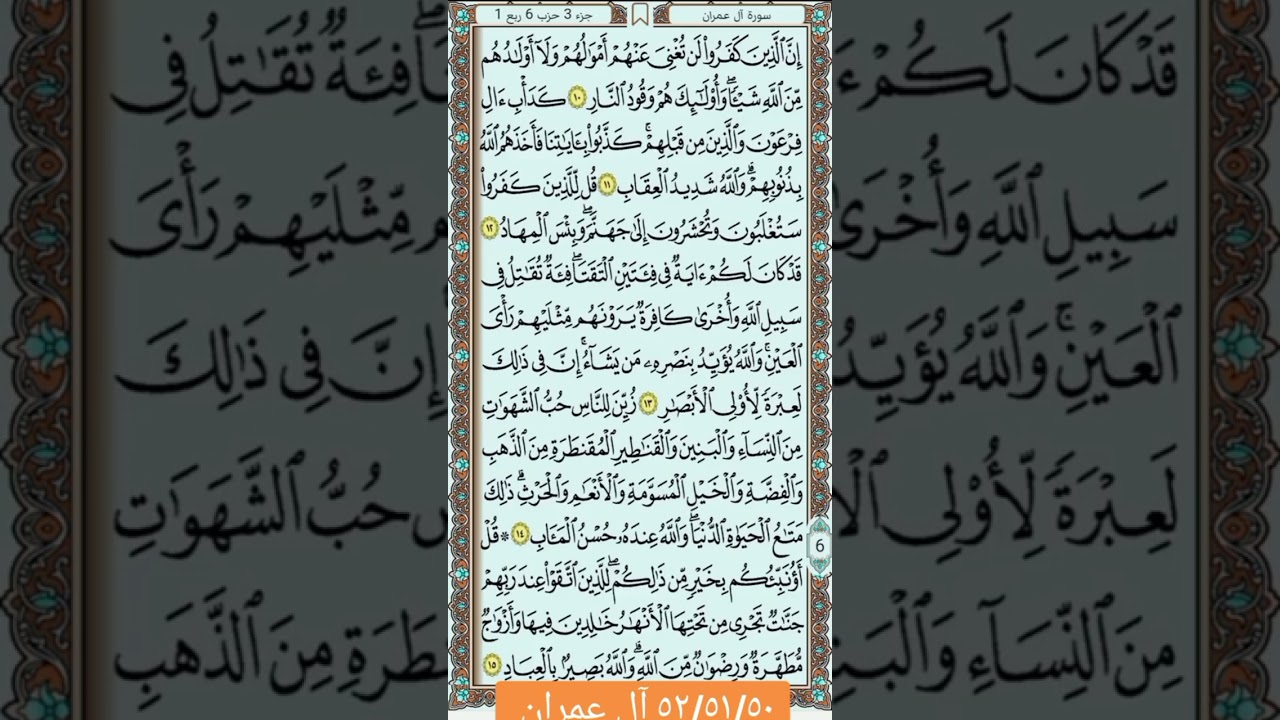 سورة آل عمران
جزء 3 حزب 6 ربع 1
إِنَّ ٱلَّذِينَ كَفَرُوا۟ لَن تُغْنِىَ عَنْهُمْ أَمْوَٰلُهُمْ وَلَآ أَوْلَـٰدُهُم
مِّنَ ٱللَّهِ شَيْـًٔا ۖ وَأُو۟لَـٰٓئِكَ هُمْ وَقُودُ ٱلنَّارِ ١٠ كَدَأْبِ ءَالِ
فِرْعَوْنَ وَٱلَّذِينَ مِن قَبْلِهِمْ ۚ كَذَّبُوا۟ بِـَٔايَـٰتِنَا فَأَخَذَهُمُ ٱللَّهُ
بِذُنُوبِهِمْ ۗ وَٱللَّهُ شَدِيدُ ٱلْعِقَابِ ١١ قُل لِّلَّذِينَ كَفَرُوا۟
سَتُغْلَبُونَ وَتُحْشَرُونَ إِلَىٰ جَهَنَّمَ ۚ وَبِئْسَ ٱلْمِهَادُ ١٢
قَدْ كَانَ لَكُمْ ءَايَةٌ فِى فِئَتَيْنِ ٱلْتَقَتَا ۖ فِئَةٌ تُقَـٰتِلُ فِى
سَبِيلِ ٱللَّهِ وَأُخْرَىٰ كَافِرَةٌ يَرَوْنَهُم مِّثْلَيْهِمْ رَأْىَ
ٱلْعَيْنِ ۚ وَٱللَّهُ يُؤَيِّدُ بِنَصْرِهِۦ مَن يَشَآءُ ۗ إِنَّ فِى ذَٰلِكَ
لَعِبْرَةً لِّأُو۟لِى ٱلْأَبْصَـٰرِ ١٣ زُيِّنَ لِلنَّاسِ حُبُّ ٱلشَّهَوَٰتِ
مِنَ ٱلنِّسَآءِ وَٱلْبَنِينَ وَٱلْقَنَـٰطِيرِ ٱلْمُقَنطَرَةِ مِنَ ٱلذَّهَبِ
وَٱلْفِضَّةِ وَٱلْخَيْلِ ٱلْمُسَوَّمَةِ وَٱلْأَنْعَـٰمِ وَٱلْحَرْثِ ۗ ذَٰلِكَ
مَتَـٰعُ ٱلْحَيَوٰةِ ٱلدُّنْيَا ۖ وَٱللَّهُ عِندَهُۥ حُسْنُ ٱلْمَـَٔابِ ١٤ ۞ قُلْ
أَؤُنَبِّئُكُم بِخَيْرٍ مِّن ذَٰلِكُمْ ۚ لِلَّذِينَ ٱتَّقَوْا۟ عِندَ رَبِّهِمْ
جَنَّـٰتٌ تَجْرِى مِن تَحْتِهَا ٱلْأَنْهَـٰرُ خَـٰلِدِينَ فِيهَا وَأَزْوَٰجٌ
مُّطَهَّرَةٌ وَرِضْوَٰنٌ مِّنَ ٱللَّهِ ۗ وَٱللَّهُ بَصِيرٌۢ بِٱلْعِبَادِ ١٥
6
٥٢/٥١/٥٠ آل عمران